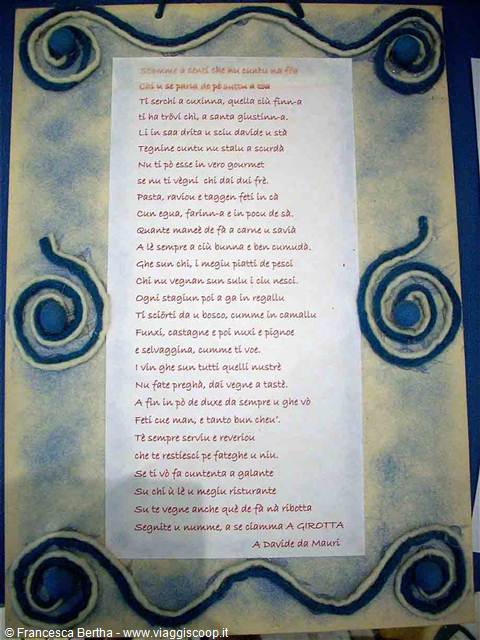 Stamme a senti che nu cuntu na föa
Chi u se parla de pè suttu a toa
Ti serchi a cuxinna, quella ciù finn-a
ti ha tròvi chì, a santa giustinn-a.
Li in saa drita u sciu davide u stà
Tegnine cuntu nu stalu a scurdà
Nu ti pò esse in vero gourmet
se nu ti vègni chi dai dui frè.
Pasta, raviou e taggen feti in cà
Cun egua, farinn-a e in pocu de sà.
Quante maneè de fà a carne u savià
A lè sempre a ciù bunna e ben cumudà.
Ghe sun chi, i megiu piatti de pesci
Chi nu vegnan sun sulu i ciu nesci.
Ogni stagiun poi a ga in regallu
Ti sciörti da u bosco, cumme in camallu
Funxi, castagne e poi nuxi e pignoe
e selvaggina, cumme ti voe.
I vin ghe sun tutti quelli nustrè
Nu fate preghà, dai vegne a tastè.
A fin in pò de duxe da sempre u ghe vò
Feti cue man, e tanto bun cheu'.
Tè sempre serviu e reveriou
che te restiesci pe fateghe u niu.
Se ti vò fa cuntenta a galante
Su chi ù lè u megiu risturante
Su te vegne anche què de fà nà ribotta
Segnite u numme, a se ciamma A GIROTTA
A Davide da Mauri
© Francesca Bertha - www.viaggiscoop.it